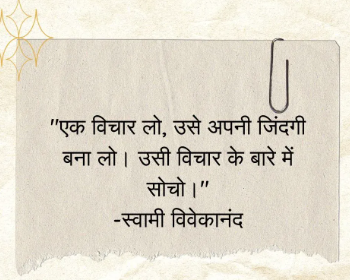 "एक विचार लो, उसे अपनी जिंदगी
बना लो। उसी विचार के बारे में
सोचो।"
-स्वामी विवेकानंद